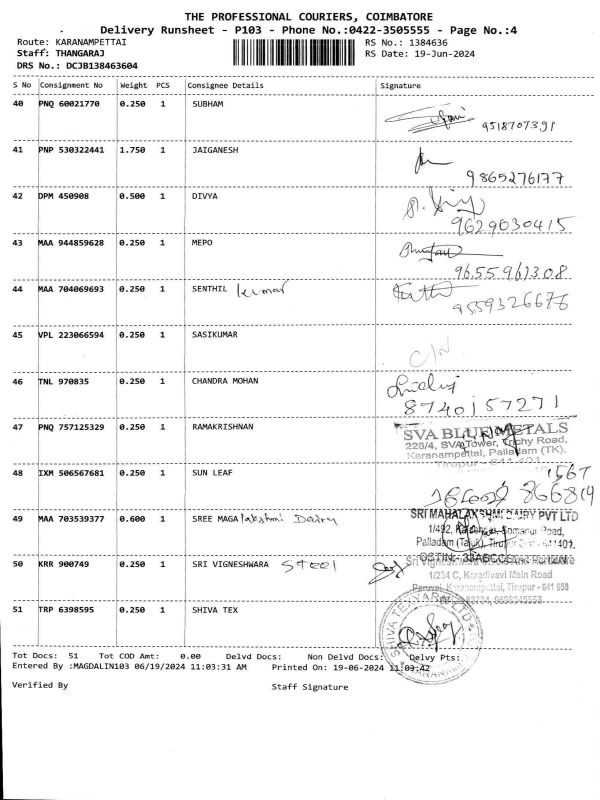 THE PROFESSIONAL COURIERS, COIMBATORE
Delivery Runsheet - P103 - Phone No.:0422-3505555 - Page No.:4
Route: KARANAMPETTAI RS No.: 1384636
Staff: THANGARAJ RS Date: 19-Jun-2024
DRS No.: DCJB138463604
S No Consignment No Weight PCS Consignee Details Signature
40 PNQ 60021770 0.250 1 SUBHAM
9518707391
41 PNP 530322441 1.750 1 JAIGANESH
9865276177
42 DPM 450908 0.500 1 DIVYA
9629030415
43 MAA 944859628 0.250 1 MEPO
9655961308
44 MAA 704069693 0.250 1 SENTHIL kumar
9559326676
45 VPL 223066594 0.250 1 SASIKUMAR
C/N
46 TNL 970835 0.250 1 CHANDRA MOHAN
8740157271
47 PNQ 757125329 0.250 1 RAMAKRISHNAN
SVA BLUE METALS
228/4, SVA Tower, Trichy Road,
Karanampettai, Palladam (TK).
48 IXM 506567681 0.250 1 SUN LEAF
49 MAA 703539377 0.600 1 SREE MAGAlakshmi Dairy
SRI MAHALAKSHMI DAIRY PVT LTD
50 KRR 900749 0.250 1 SRI VIGNESHWARA STEEl
1/234 C, Karadivavi Main Road
Karanampettai, Tirupur - 641 658
51 TRP 6398595 0.250 1 SHIVA TEX
Tot Docs: 51 Tot COD Amt: 0.00 Delvd Docs: Non Delvd Docs: Delvy Pts:
Entered By :MAGDALIN103 06/19/2024 11:03:31 AM Printed On: 19-06-2024 11:03:42
Verified By Staff Signature